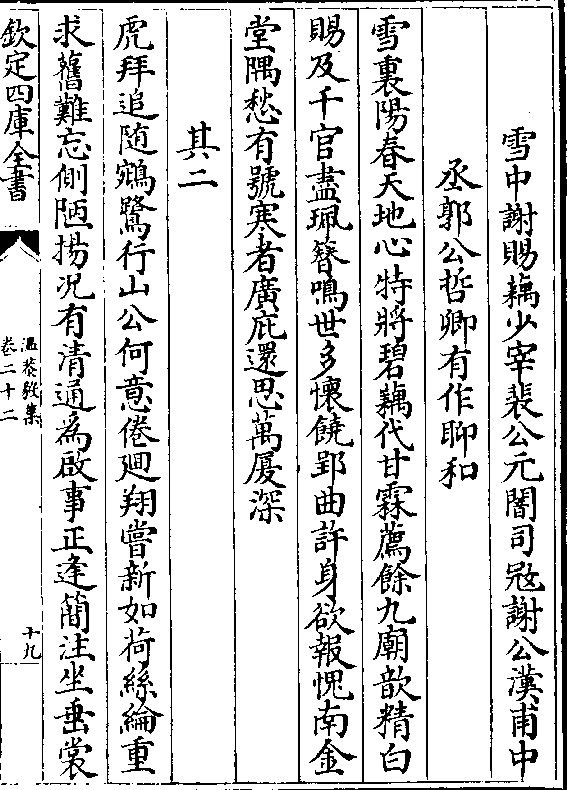 雪中謝賜藕少宰裴公元闇司宼謝公漢甫中
丞郭公哲卿有作聊和
雪裏陽春天地心特將碧藕代甘霖薦餘九廟歆精白
賜及千官盡珮簪鳴世多懷饒郢曲許身欲報愧南金
堂隅愁有號寒者廣庇還思萬厦深
其二
虎拜追随鵷鷺行山公何意倦廻翔嘗新如荷絲綸重
求舊難忘側陋揚况有清通為啟事正逢簡注坐垂裳
欽定四庫全書
温恭毅集
卷二十二
十九